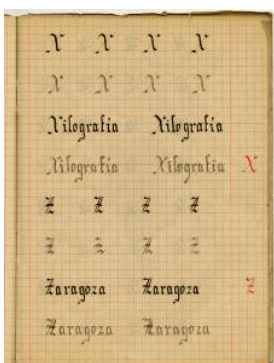 X X X X
X X X X
Xilografia Xilografia
Xilografia Xilografia X
Z Z Z Z
Z Z Z Z
Zaragoza Zaragoza Z
Zaragoza Zaragoza